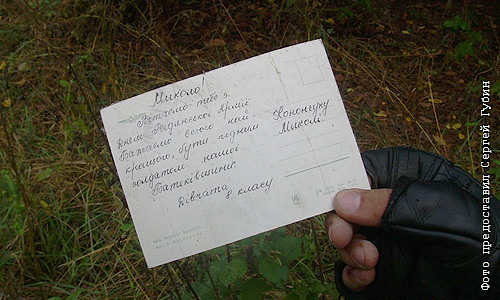 Миколо!
Вітаємо тебе з
Днем Радянської Армії.
Бажаємо всього най-
кращого, бути гідним
солдатом нашої
Батьківщини.
Дівчата 8 класу
Кононгуку
Миколі.
Фото предоставил Сергей Губин